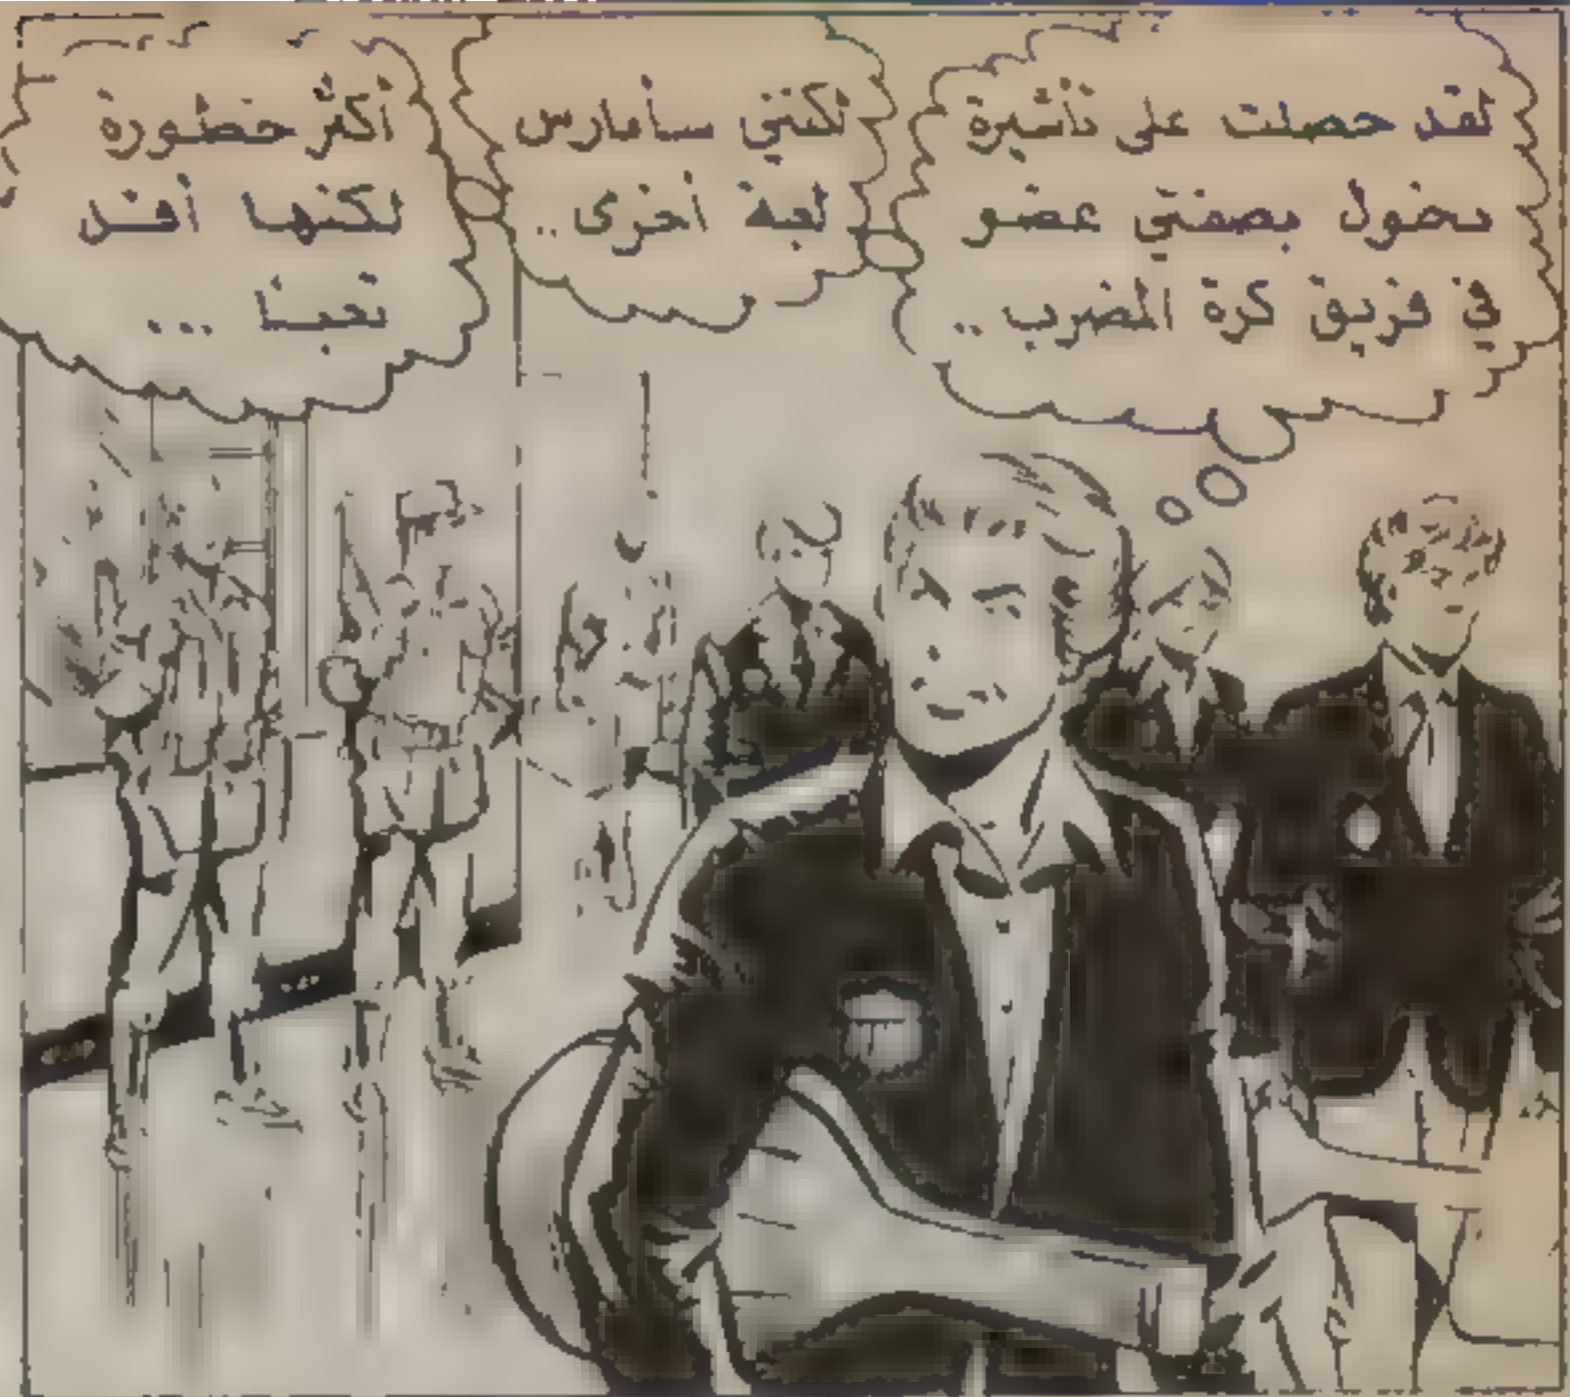 لقد حصلت على تأشيرة
دخول بصفتي عضو
في فريق كرة المضرب ..
لكنني سأمارس
لعبة أخرى ..
أكثر خطورة
لكنها أقل
تعبا ...